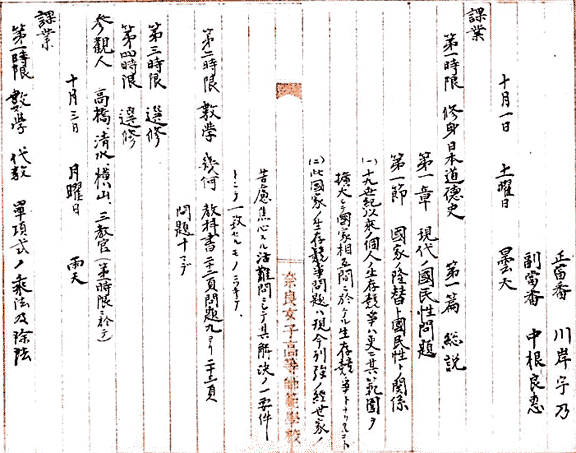 正當番 川岸字乃
副當番 中根良恵
十月一日 土曜日 曇天
課業
第一時限 修身 日本道德史 第一篇 総説
第一章 現代ノ國民性問題
第一節 國家ノ隆替ト國民性トノ関係
(一)十九世紀以來ノ個人ノ生存競争ハ更ニ其範圍ヲ
擴大シテ國家相互間ニ於ケル生存競争トナリシコト
(二)此國家ノ生存競争問題ハ現今列強ノ經世家ノ
奈良女子高等師範學校
苦慮焦心セル活難問ニシテ其解決ノ一要件
トシテ一致セルモノニシテ、
第二時限 數學 幾何 教科書二十二頁問題九ヨリ二十三頁
問題十マデ
第三時限 選修
第四時限 選修
參觀人 高橋、清水、横山、三教官(第一時限ニ於テ)
十月三日 月曜日 雨天
課業
第一時限 數學 代数 單項式ノ乘法及除法